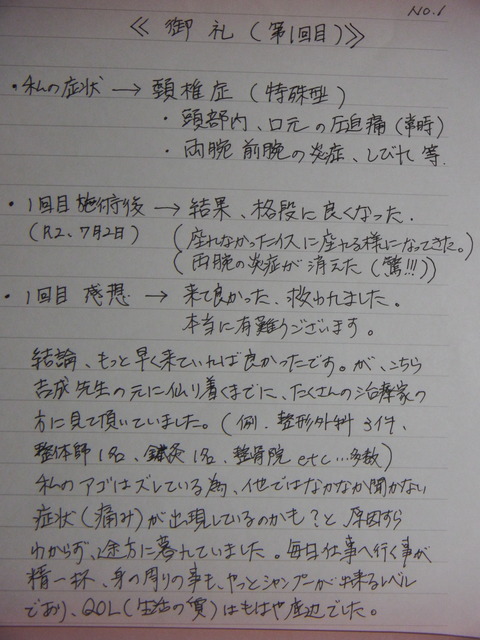 NO.1
≪ 御礼（第1回目）≫
・私の症状 → 頸椎症（特殊型）
・頭部内、口元の圧迫痛（常時）
・両腕前腕の炎症、しびれ等.
・1回目施術後 → 結果、格段に良くなった.
（R2、7月2日）（座れなかったイスに座れる様になってきた。）
（両腕の炎症が消えた（驚!!!））
・1回目 感想 → 来て良かった、救われました。
本当に有難うございます。
結論、もっと早く来ていれば良かったです。が、こちら
吉成先生の元に辿り着くまでに、たくさんの治療家の
方に見て頂いていました。（例.整形外科 3件、
整体師1名、鍼灸1名、整骨院 etc…多数）
私のアゴはズレている為、他ではなかなか聞かない
症状（痛み）が出現しているのかも？と 原因すら
わからず、途方に暮れていました。毎日仕事へ行く事が
精一杯、身の周りの事も、やっとシャンプーが出来るレベル
であり、QOL（生活の質）はもはや底辺でした。